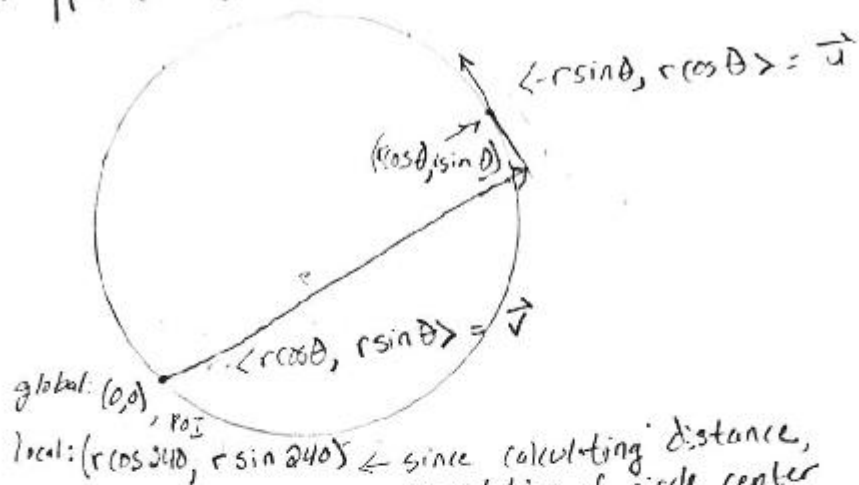 <-rsinθ, rcosθ> = u
(rcosθ, rsinθ)
<rcosθ, rsinθ> = v
global: (0,0), POI
local: (rcos240, rsin240) ← since calculating distance,
of circle center